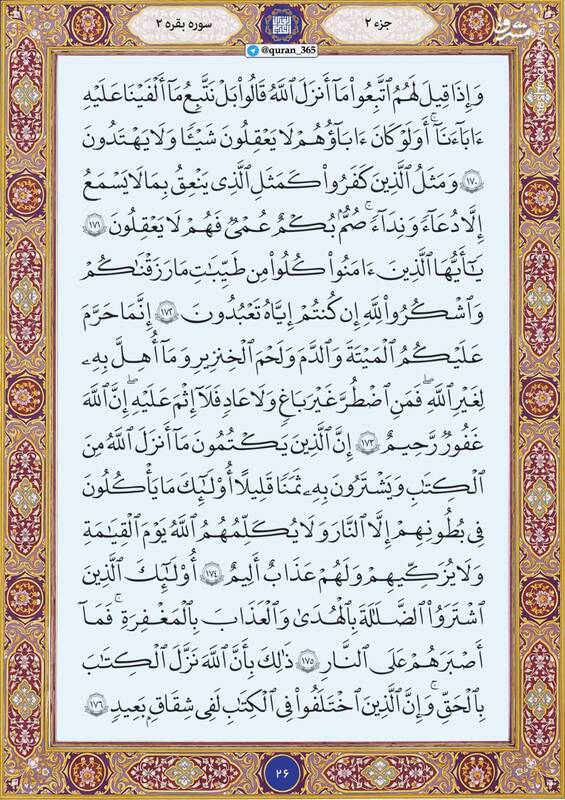 جزء ۲
سوره بقره ۲
@quran_365
وَإِذَا قِيلَ لَهُمُ ٱتَّبِعُوا۟ مَآ أَنزَلَ ٱللَّهُ قَالُوا۟ بَلْ نَتَّبِعُ مَآ أَلْفَيْنَا عَلَيْهِ
ءَابَآءَنَآ ۗ أَوَلَوْ كَانَ ءَابَآؤُهُمْ لَا يَعْقِلُونَ شَيْـًٔا وَلَا يَهْتَدُونَ
۱۷۰ وَمَثَلُ ٱلَّذِينَ كَفَرُوا۟ كَمَثَلِ ٱلَّذِى يَنْعِقُ بِمَا لَا يَسْمَعُ
إِلَّا دُعَآءً وَنِدَآءً ۚ صُمٌّۢ بُكْمٌ عُمْىٌ فَهُمْ لَا يَعْقِلُونَ ۱۷۱
يَـٰٓأَيُّهَا ٱلَّذِينَ ءَامَنُوا۟ كُلُوا۟ مِن طَيِّبَـٰتِ مَا رَزَقْنَـٰكُمْ
وَٱشْكُرُوا۟ لِلَّهِ إِن كُنتُمْ إِيَّاهُ تَعْبُدُونَ ۱۷۲ إِنَّمَا حَرَّمَ
عَلَيْكُمُ ٱلْمَيْتَةَ وَٱلدَّمَ وَلَحْمَ ٱلْخِنزِيرِ وَمَآ أُهِلَّ بِهِۦ
لِغَيْرِ ٱللَّهِ ۖ فَمَنِ ٱضْطُرَّ غَيْرَ بَاغٍ وَلَا عَادٍ فَلَآ إِثْمَ عَلَيْهِ ۚ إِنَّ ٱللَّهَ
غَفُورٌ رَّحِيمٌ ۱۷۳ إِنَّ ٱلَّذِينَ يَكْتُمُونَ مَآ أَنزَلَ ٱللَّهُ مِنَ
ٱلْكِتَـٰبِ وَيَشْتَرُونَ بِهِۦ ثَمَنًا قَلِيلًا أُو۟لَـٰٓئِكَ مَا يَأْكُلُونَ
فِى بُطُونِهِمْ إِلَّا ٱلنَّارَ وَلَا يُكَلِّمُهُمُ ٱللَّهُ يَوْمَ ٱلْقِيَـٰمَةِ
وَلَا يُزَكِّيهِمْ وَلَهُمْ عَذَابٌ أَلِيمٌ ۱۷۴ أُو۟لَـٰٓئِكَ ٱلَّذِينَ
ٱشْتَرَوُا۟ ٱلضَّلَـٰلَةَ بِٱلْهُدَىٰ وَٱلْعَذَابَ بِٱلْمَغْفِرَةِ ۚ فَمَآ
أَصْبَرَهُمْ عَلَى ٱلنَّارِ ۱۷۵ ذَٰلِكَ بِأَنَّ ٱللَّهَ نَزَّلَ ٱلْكِتَـٰبَ
بِٱلْحَقِّ ۗ وَإِنَّ ٱلَّذِينَ ٱخْتَلَفُوا۟ فِى ٱلْكِتَـٰبِ لَفِى شِقَاقٍۭ بَعِيدٍ ۱۷۶
۲۶